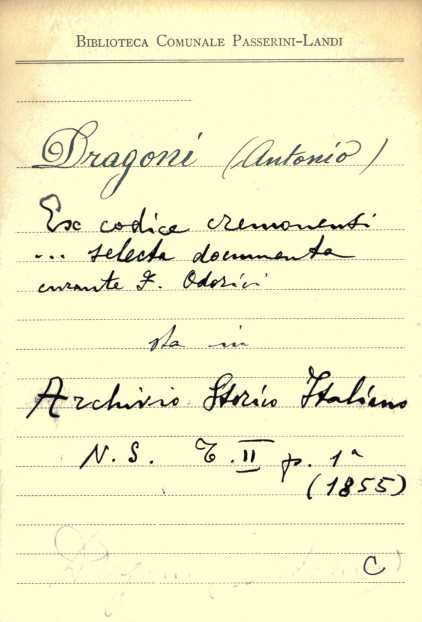 BIBLIOTECA COMUNALE PASSERINI-LANDI
Dragoni (Antonio)
Ex codice cremonensi
... selecta documenta
curante F. Odorici
sta in
Archivio Storico Italiano
N. S. T. II p. 1ª
(1855)
C